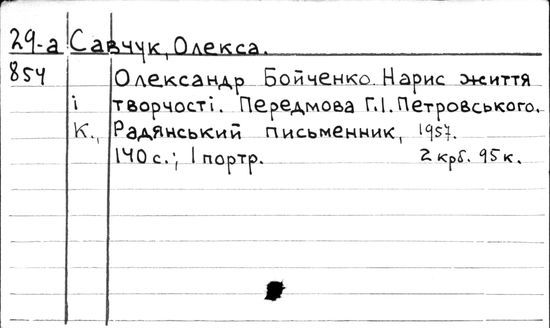 29-а Савчук, Олекса.
854 Олександр Бойченко. Нарис життя
і творчості. Передмова Г.І. Петровського.
К., Радянський письменник, 1957.
140 с.; 1 портр. 2 крб. 95 к.